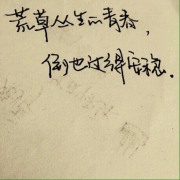 荒草丛生的青春，
倒也过得安稳.